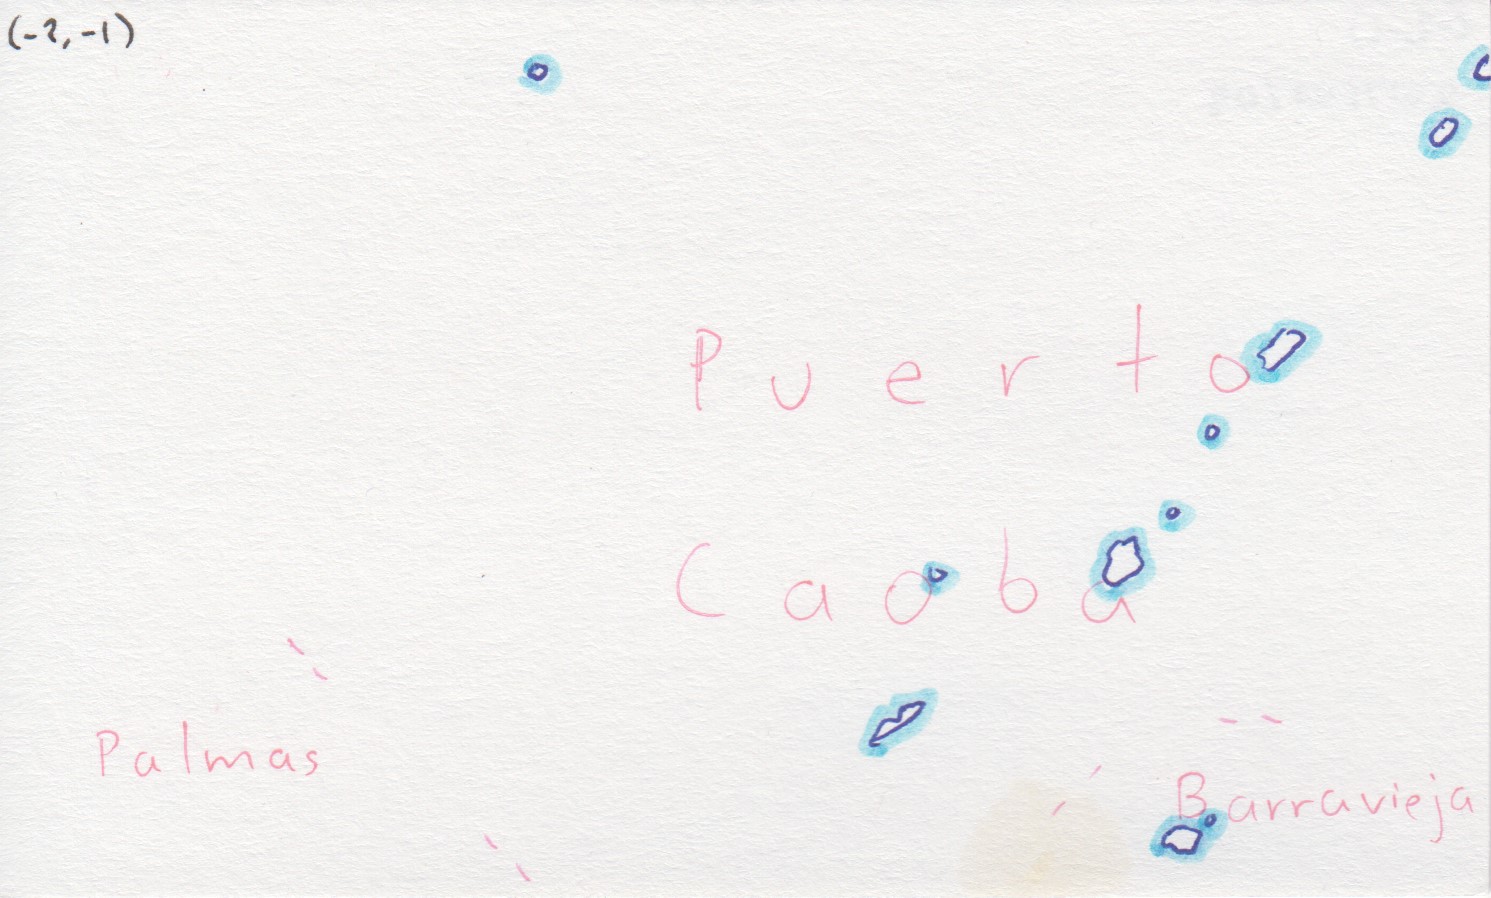 (-2,-1)
Puerto
Caoba
Palmas
Barravieja